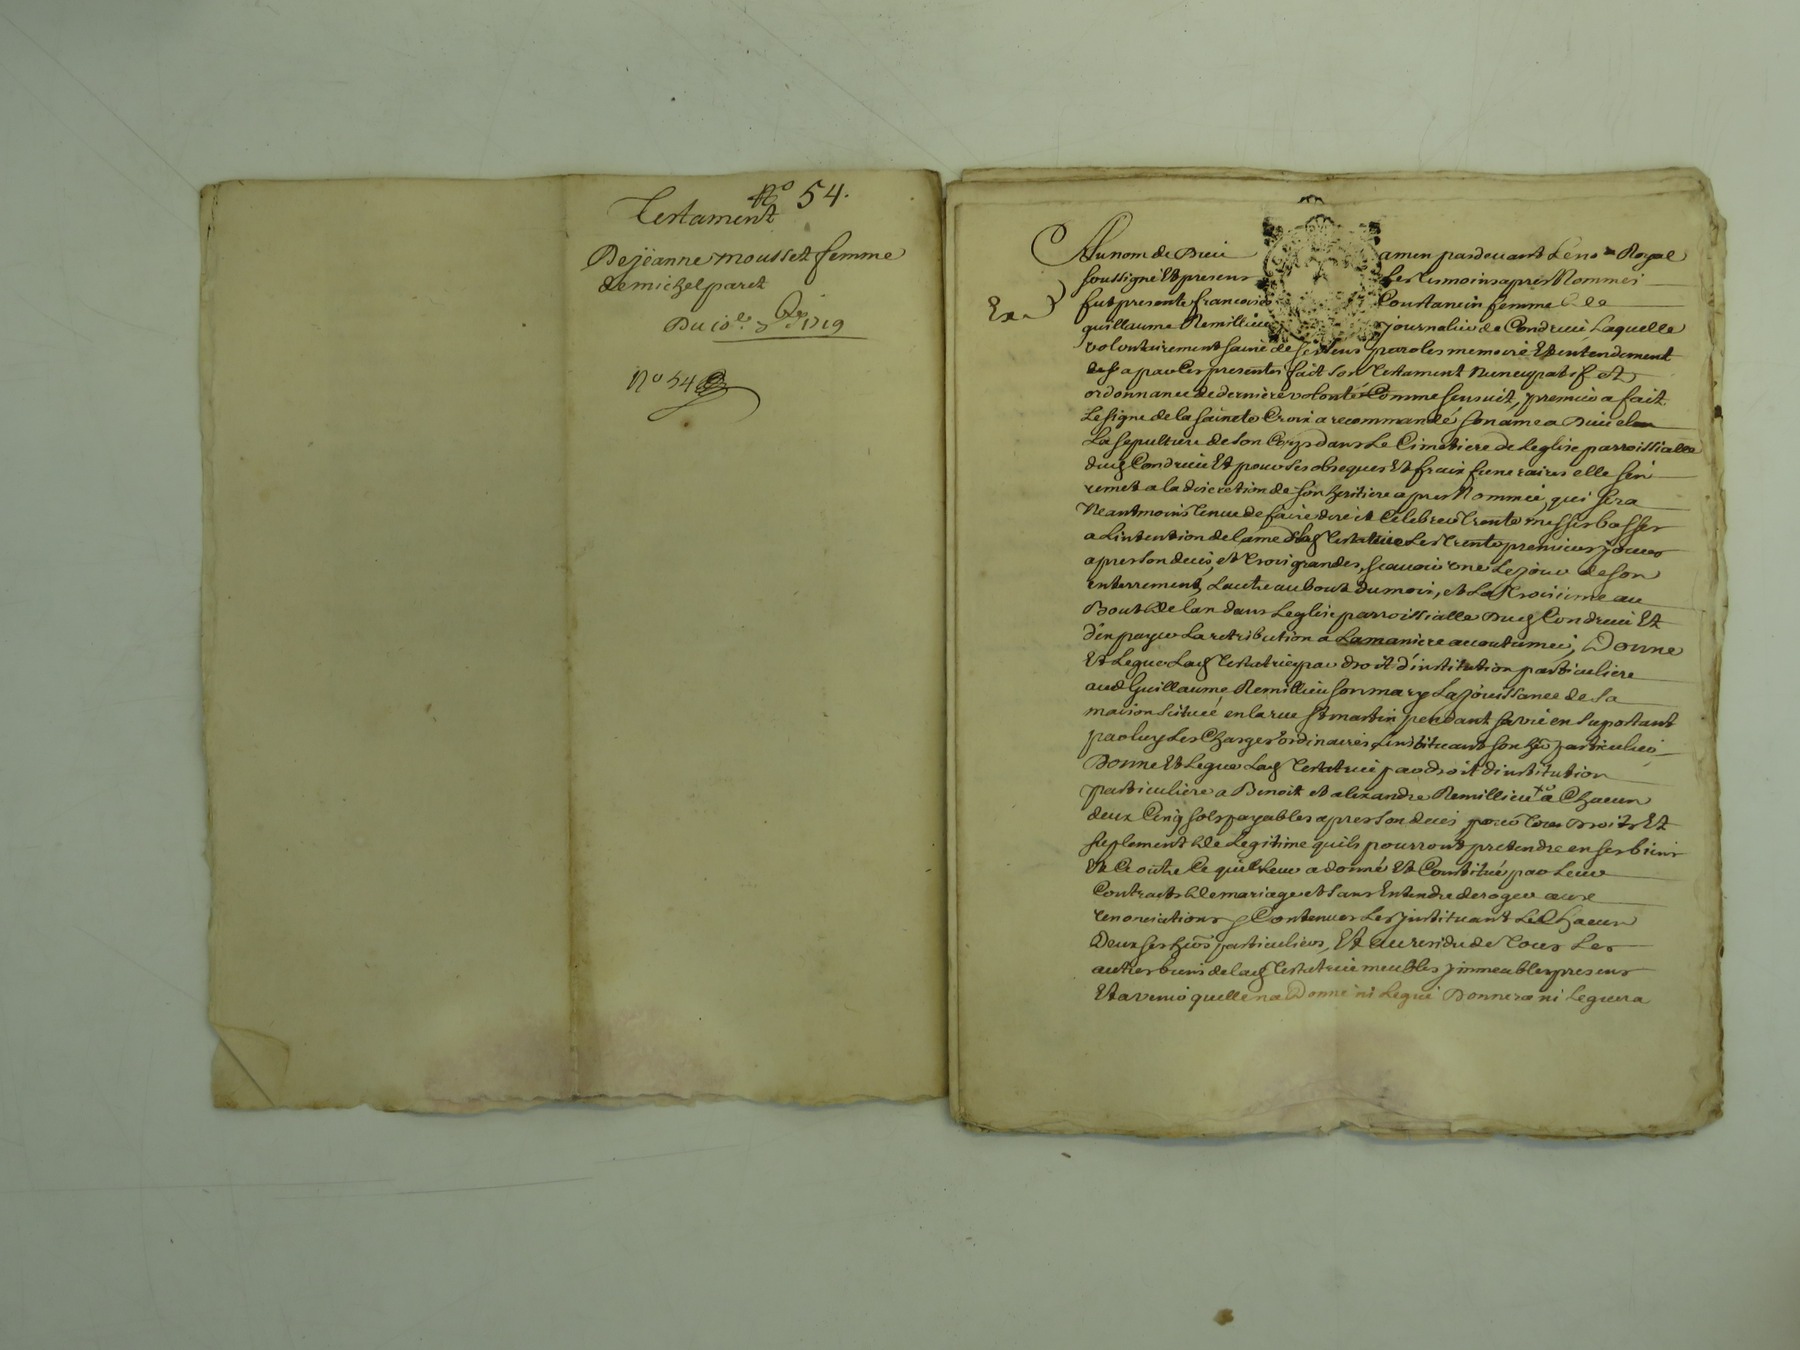 No 54.
Testament
De jeanne mousset femme
de michel paret
Du 10e. 7bre 1719
No 54
Au nom de Dieu amen pardevant Le no.re Royal
soussigné Et presens Les tesmoins apres Nommés
Ex
fut presente francoise Coustancin femme de
guillaume Remillieu journalier de Condrieu Laquelle
volontairement saine de ses sens parolles memoire Et entendement
a par Ces presentes fait son Testament Nuncupatif et
ordonnance de derniere volonté Comme sensuit, premier a fait
Le signe de la saincte Croix a recommandé son ame a Dieu
La sepulture de son Corps dans Le Cimetiere de Leglise parroissialle
dud Condrieu Et pour ses obseques Et fraix funeraires elle sen
remet a la discretion de son heritiere apres Nommée, qui sera
Neantmoins tenue de faire dire et Celebrer trente messes basses
a Lintention de lame de lad Testatrice Les trente premiers jours
apres son deces, et trois grandes, scavoir une Le jour de son
enterrement, Lautre au bout du mois, et La troisieme au
Bout de lan dans Leglise parroissialle Dud Condrieu Et
d'en payer La retribution a La maniere accoutumée, Donne
Et Legue Lad Testatrice par droit d'institution particuliere
aud Guillaume Remillieu son mary La jouissance de sa
maison scituée en la rue st martin pendant sa vie en suportant
par luy Les Charges ordinaires Linstituant son her particulier
Donne Et Legue Lad Testatrice par droit dinstitution
particuliere a Benoit et alexandre Remillieu a Chacun
deux Cinq sols payables apres son deces pour tous droits Et
suplement de Legitime quils pourront pretendre en ses biens
Et Ce outre Ce quelle Leur a donné Et Constitué par Leur
Contracts de mariage et sans Entendre deroger aux
renonciations y Contenues Les jnstituant Led Chacun
Deux ses hers particuliers, Et au residu de tous Les
autres biens de lad Testatrice meubles jmmeubles presens
Et a venir quelle na Donné ni Legué Donnera ni leguera